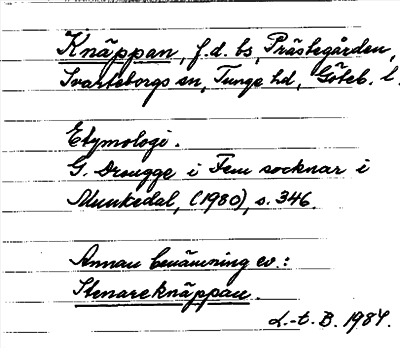 Knäppan, f.d. bs, Prästegården,
Svarteborgs sn, Tunge hd, Göteb. l.
Etymologi.
G. Drougge i Fem socknar i
Munkedal, (1980), s. 346.
Annan benämning ev.:
Stenareknäppan.
L.-t. B. 1984.